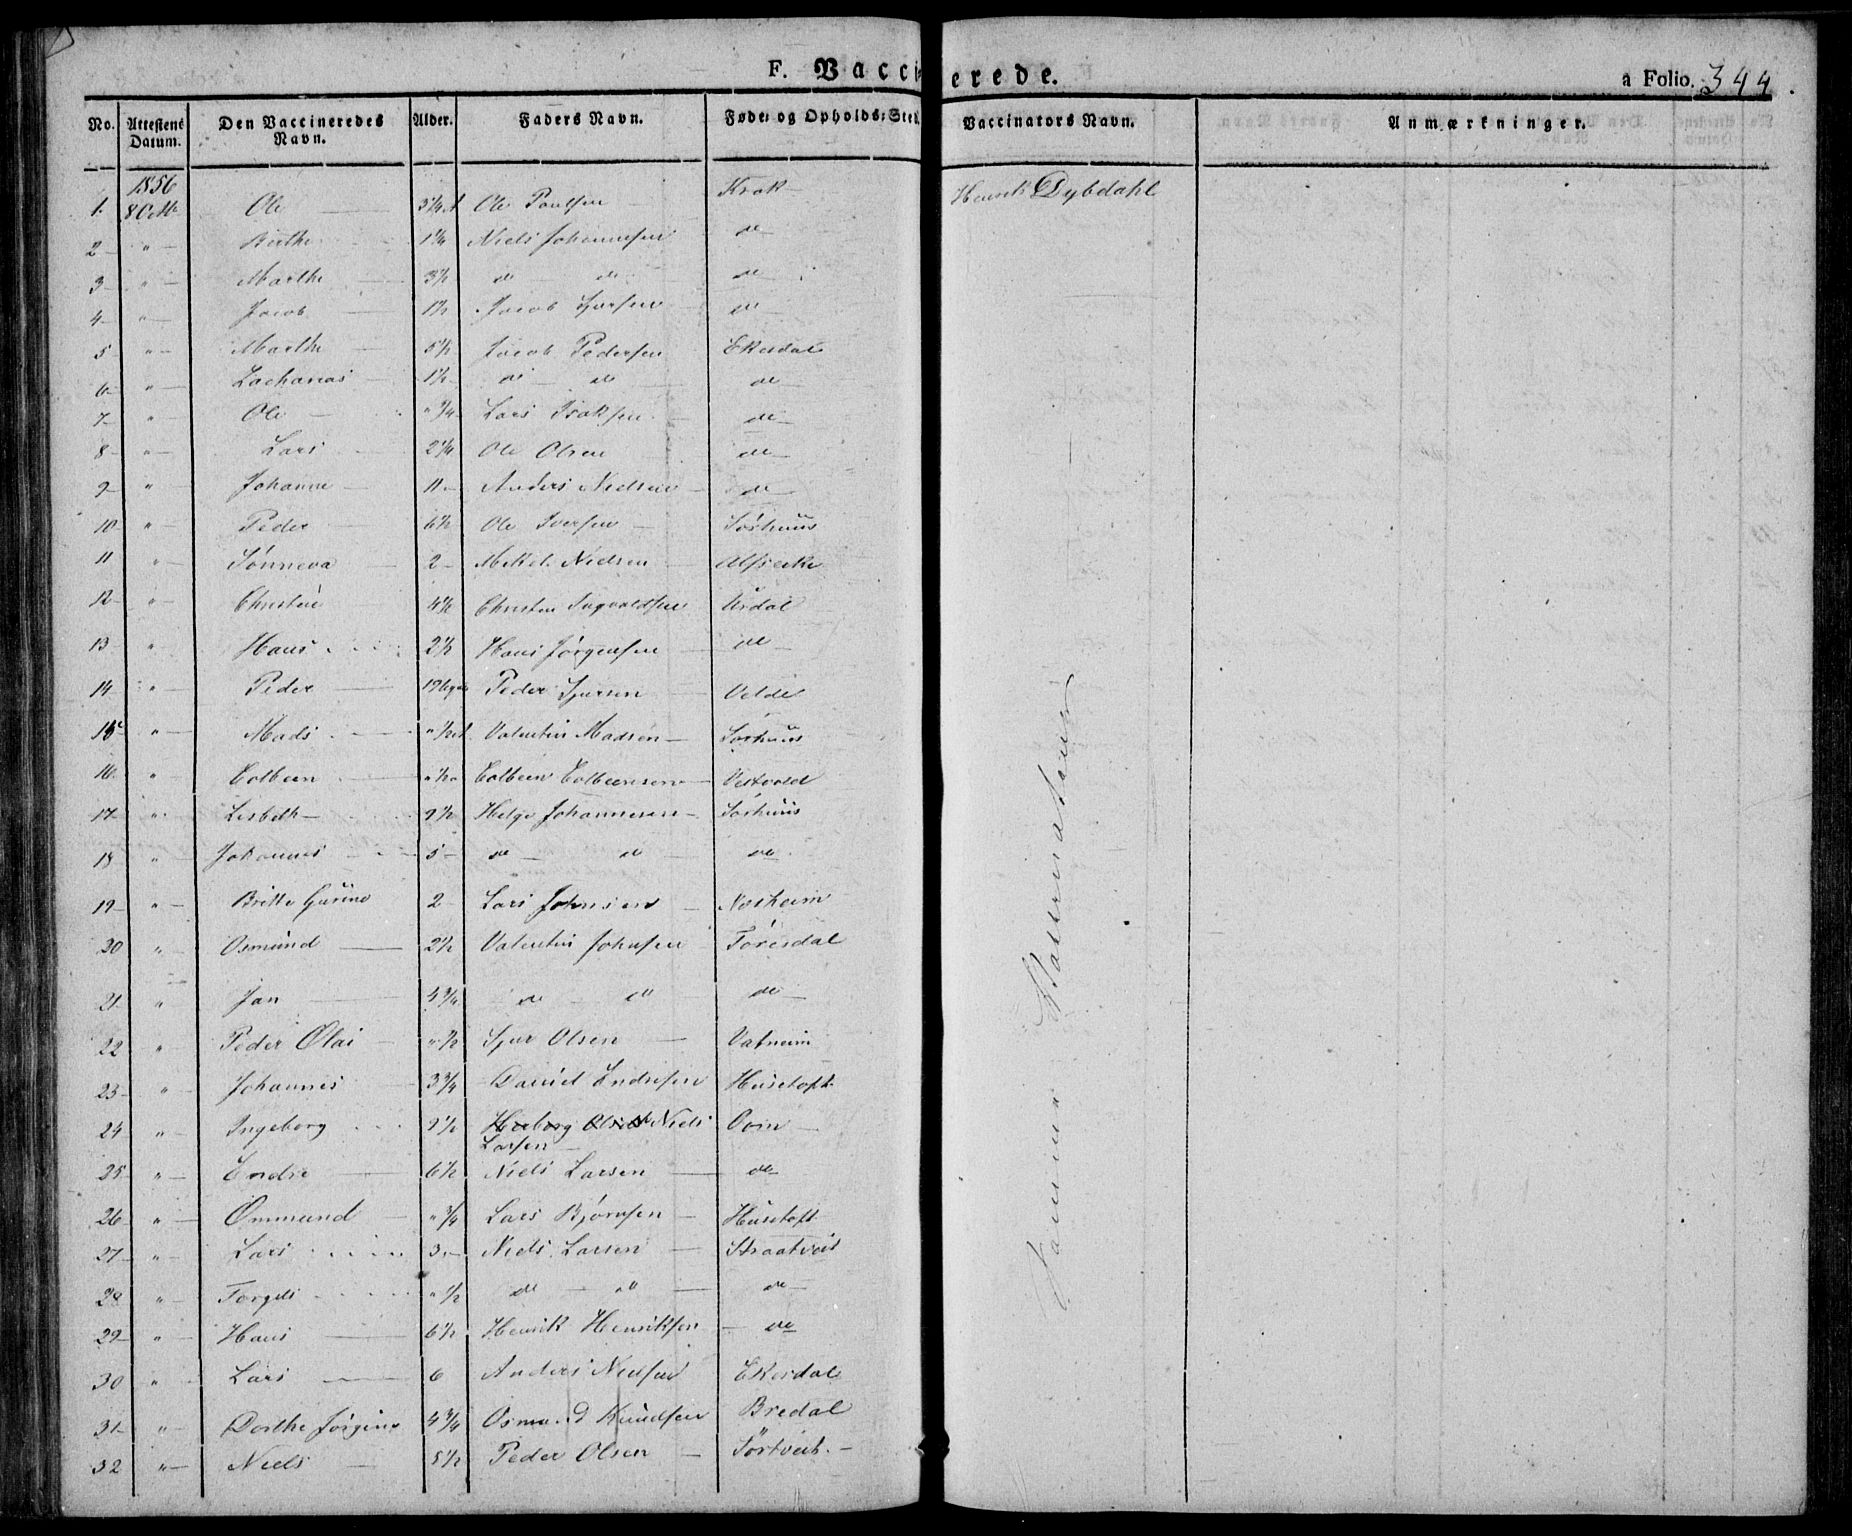 F. Vaccinerede.
a Folio. 344.
No. Attestens Datum. Den Vaccineredes Navn. Alder. Faders Navn. Føde- og Opholds-Sted. Vaccinators Navn. Anmærkninger.
1856
1. 8 Octb Ole 3 1/4 A Ole Paulsen Krak Henrik Dybdahl
2 " Berthe 1 1/4 Niels Johannesen do
3 " Marthe 3 1/2 do do do
4 " Jacob 1 1/2 Jacob Sjursen do
5 " Marthe 5 1/2 Jacob Pedersen Ekesdal
6 " Zacharias 1 1/2 do do do
7 " Ole " 3/4 Lars Isaksen do
8 " Lars 2 1/4 Ole Olsen do
9 " Johanne 11 Anders Nielsen do
10 " Peder 6 1/2 Ole Iversen Sørhuus
11 " Sønneva 2 Mikel Nielsen
12 " Christine 4 1/2 Christen Ingvaldsen Årdal
13 " Hans 2 1/2 Hans Jørgensen do
14 " Peder Peder Sjursen Velde
15 " Mads " 1/2 A Valentin Madsen Sørhuus
16 " Colbeen " 1/2 Colbeen Colbeensen Vestvold
17 " Lisbeth 9 1/2 Helge Johannesen Sørhuus
18 " Johannes 5 do do do
19 " Britte Gurine 2 Lars Johnsen Norheim
20 " Osmund 2 1/2 Valentin Johnsen Føresdal
21 " Jan 4 3/4 do do do
22 " Peder Olai " 1/2 Sjur Olsen Vatneim
23 " Johannes 3 3/4 Daniel Endresen Husetoft
24 " Ingeborg 9 1/2 Herborg Niels Larsen
25 " Endre 6 1/2 Niels Larsen do
26 " Ommund " 3/4 Lars Bjørnsen Husetoft
27 " Lars 3 Niels Larsen Straatveit
28 " Torgils " 1/2 do do do
29 " Hans 6 1/2 Henrik Henriksen do
30 " Lars 6 Anders Nielsen Ekesdal
31 " Dorthe Jørgine 4 3/4 Osmund Knudsen Bredal
32 " Niels 5 1/2 Peder Olsen Sørtveit